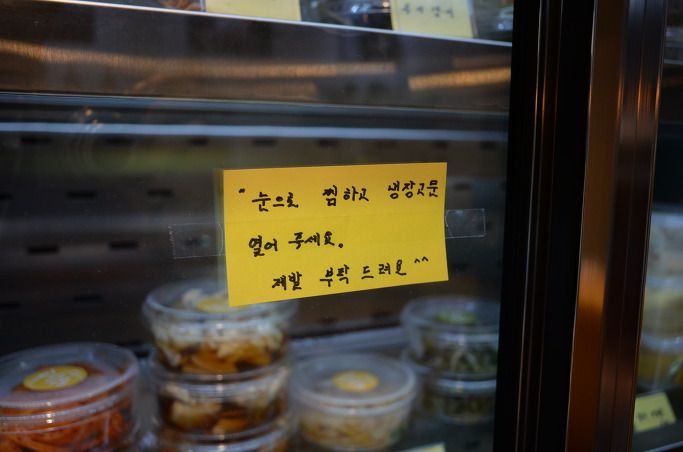 "눈으로 찜하고 냉장고문
열어 주세요.
제발 부탁 드려요^^